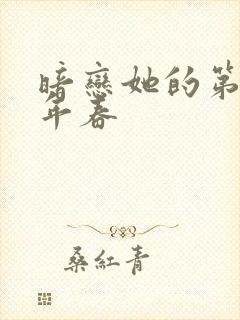 暗戀她的第
年春
桑紅青